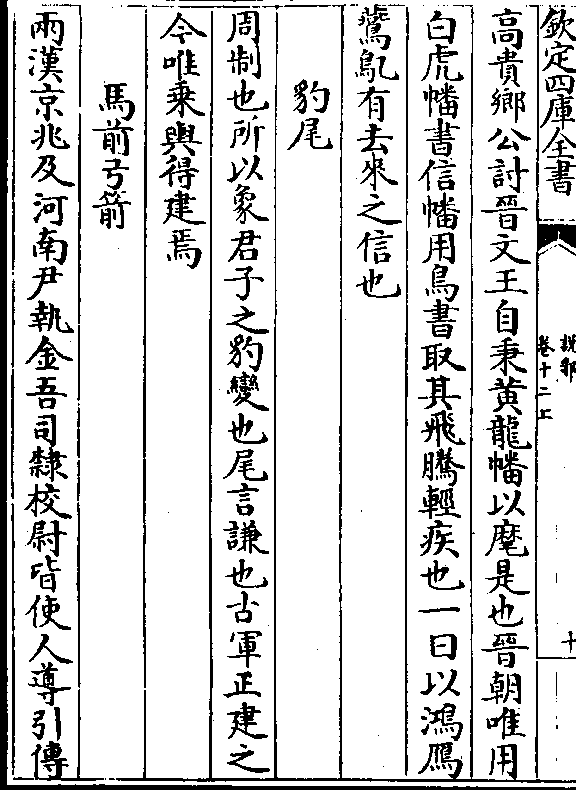 欽定四庫全書
說郛
卷十二上
十
高貴鄉公討晉文王自秉黄龍幡以麾是也晉朝唯用
白虎幡書信幡用鳥書取其飛騰輕疾也一曰以鴻鴈
鷰鳦有去來之信也
豹尾
周制也所以象君子之豹變也尾言謙也古軍正建之
今唯乗輿得建焉
馬前弓箭
兩漢京兆及河南尹執金吾司隸校尉皆使人導引傳